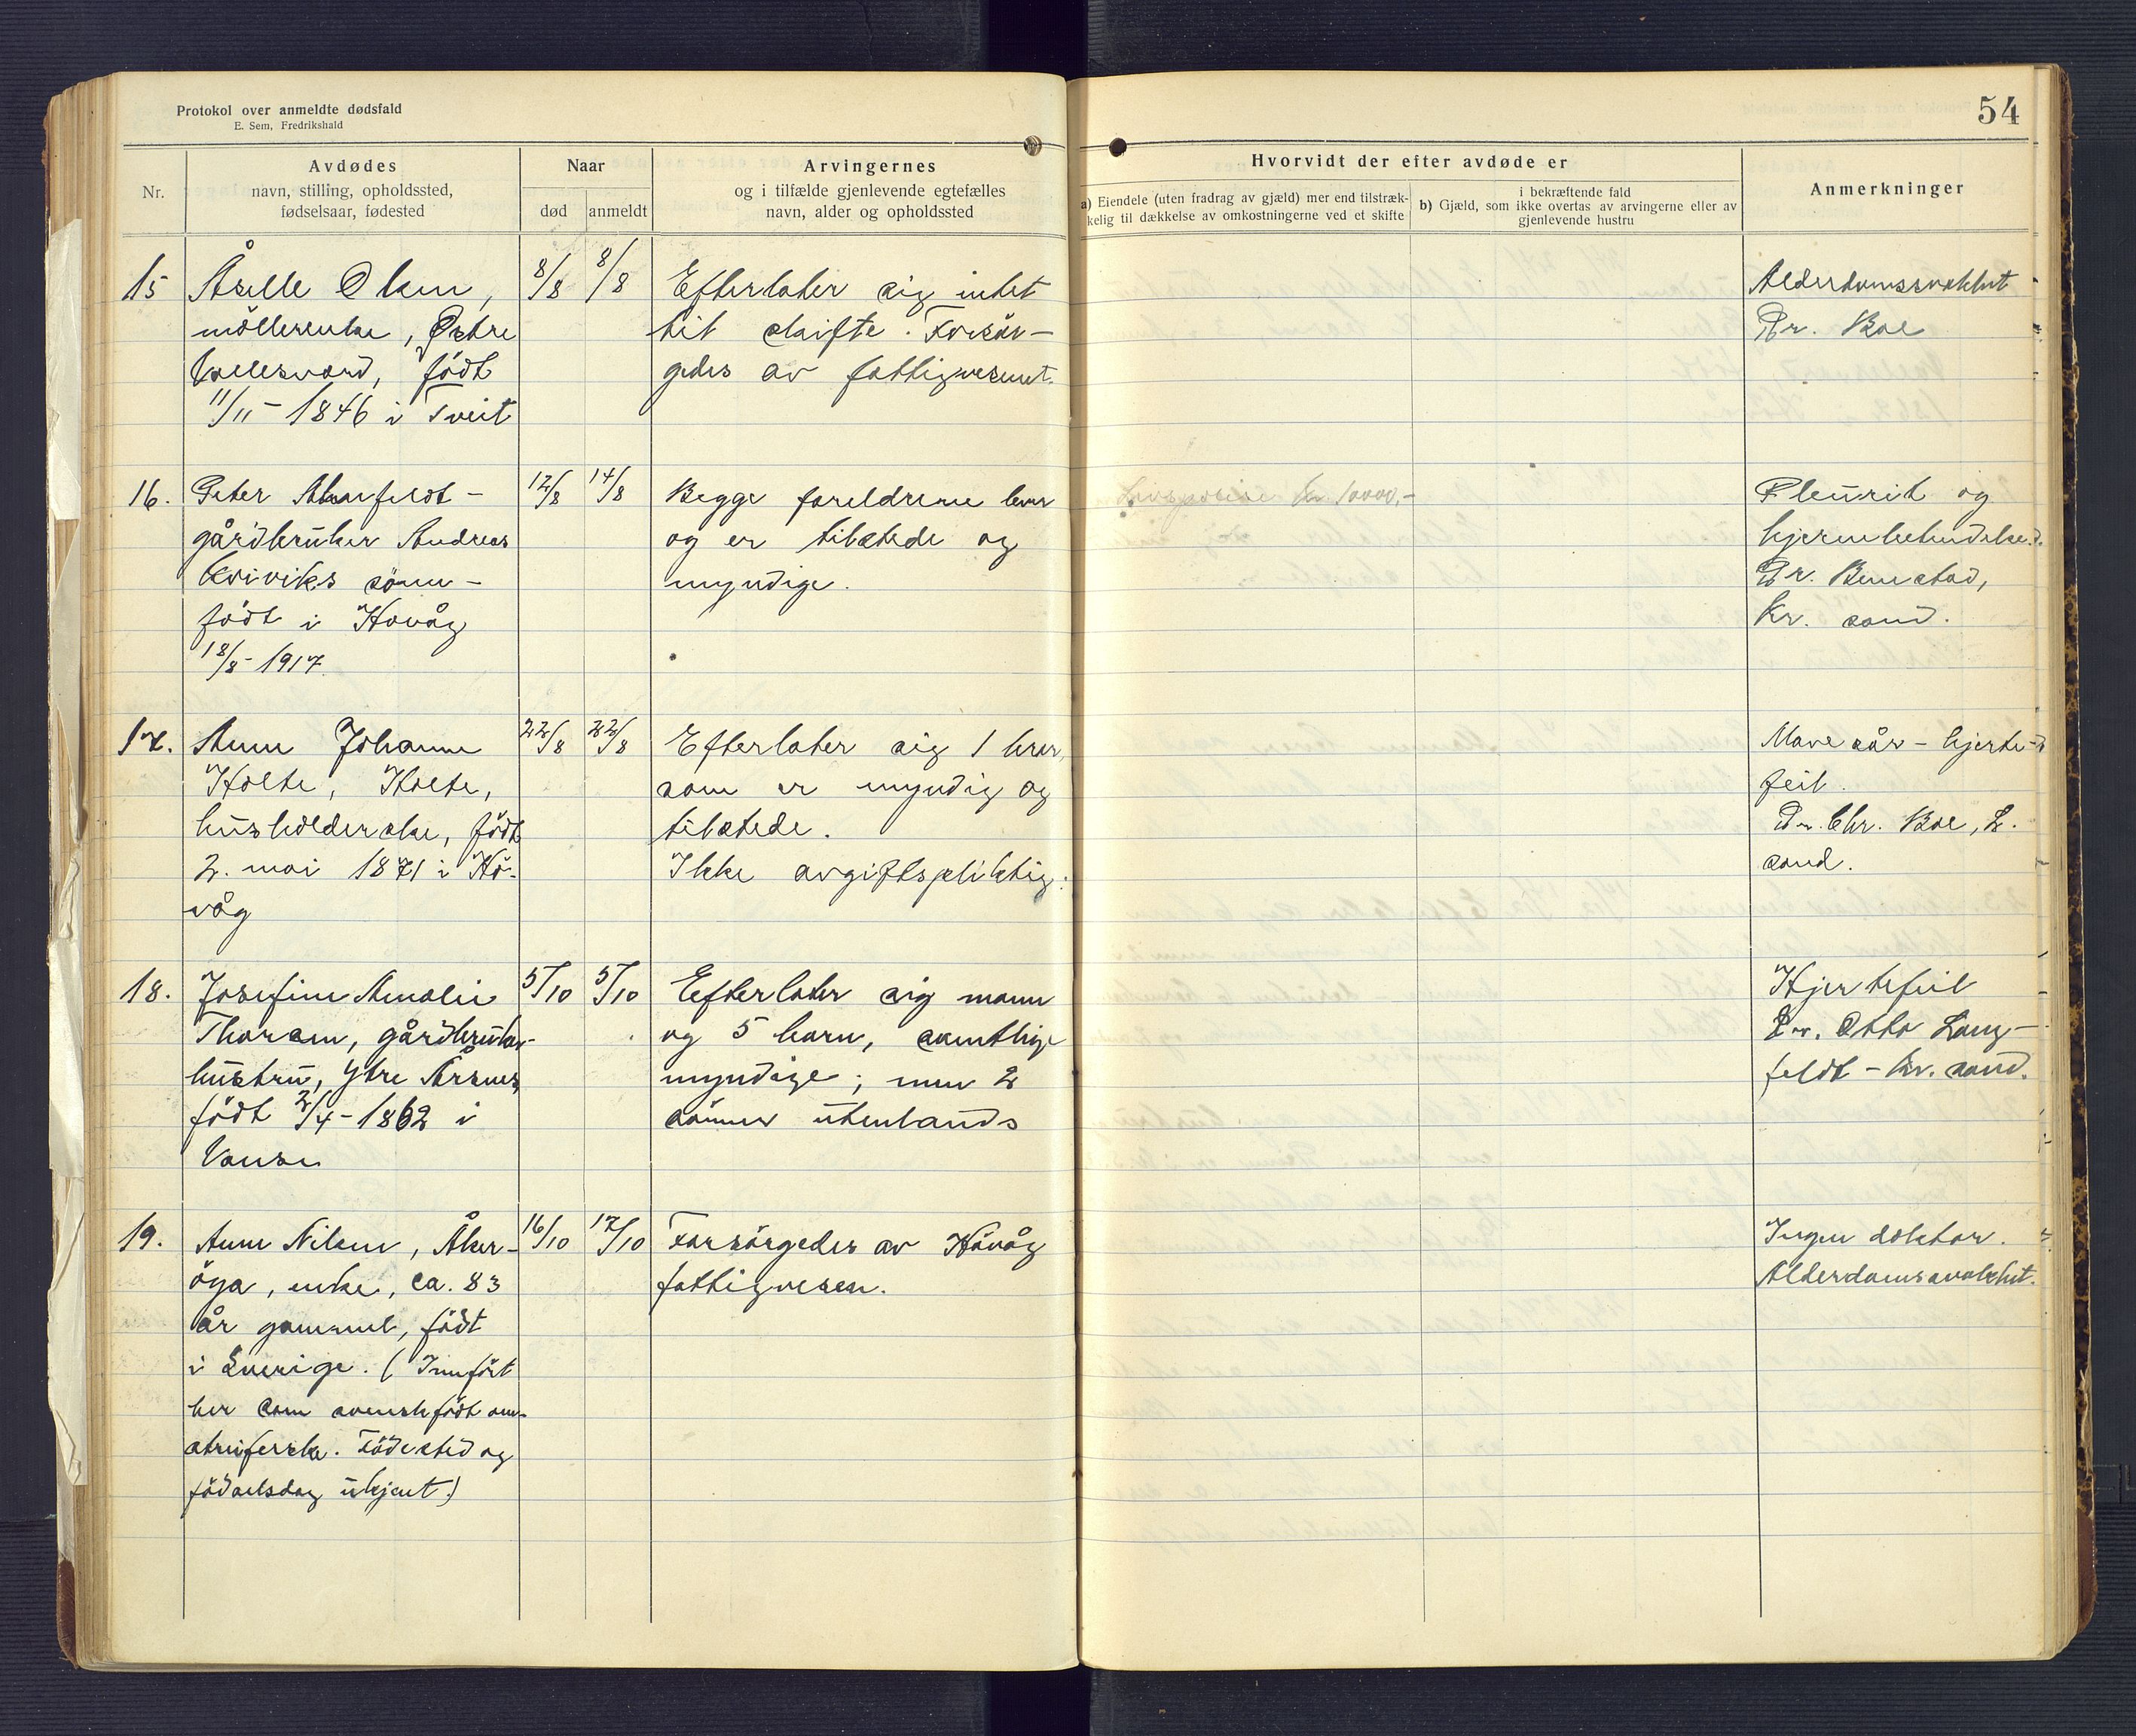 Protokol over anmeldte dødsfald
E. Sem, Fredrikshald
54
Nr.
Avdødes
navn, stilling, opholdssted,
fødselsaar, fødested
Naar
død
anmeldt
Arvingernes
og i tilfælde gjenlevende egtefælles
navn, alder og opholdssted
Hvorvidt der efter avdøde er
a) Eiendele (uten fradrag av gjæld) mer end tilstræk-
kelig til dækkelse av omkostningerne ved et skifte
i bekræftende fald
b) Gjæld, som ikke overtas av arvingerne eller av
gjenlevende hustru
Anmerkninger
15
Åselle Olsen,
möllerenke, Östre
Vallesverd, født
11/11 - 1846 i Tveit
8/8
8/8
Efterlater sig intet
til skifte. Forsör-
gedes av fattigvesenet.
Alderdomssvakhet
Dr. Boe
16.
Peter
gårdbruker Andreas
Kviviks sönn -
födt i Hovåg
18/8 - 1917.
12/8
14/8
Begge foreldrene lever
og er tilstede og
myndige.
Livspolise kr. 10000,-
Pleurit og
hjernebetendelse.
Dr. Benestad,
Kr. sand.
17.
Anne Johanne
Holte, Holte,
husholderske, födt
2. mai 1871 i Hö-
våg
22/8
22/8
Efterlater sig 1 bror,
som er myndig og
tilstede.
Ikke avgiftspliktig.
Mavesår - hjerte-
feil.
Dr. Chr. Boe, L.
sand.
18.
Josefine Amalie
Thorsen, gårdbruker-
hustru, Ytre Årsnes,
födt 2/4 - 1862 i
Vanse
5/10
5/10
Efterlater sig mann
og 5 barn, samtlige
myndige; men 2
sönner utenlands
Hjertefeil
Dr. Otto Lang-
feldt - Kr. sand.
19.
Anne Nilsen, Åker-
öya, enke, ca. 83
år gammel, födt
i Sverige. (Innfört
her som svenskfödt om-
streiferske. Födested og
födselsdag ukjent.)
16/10
17/10
Forsörgedes av Hövåg
fattigvesen.
Ingen doktor.
Alderdomsvakhet.